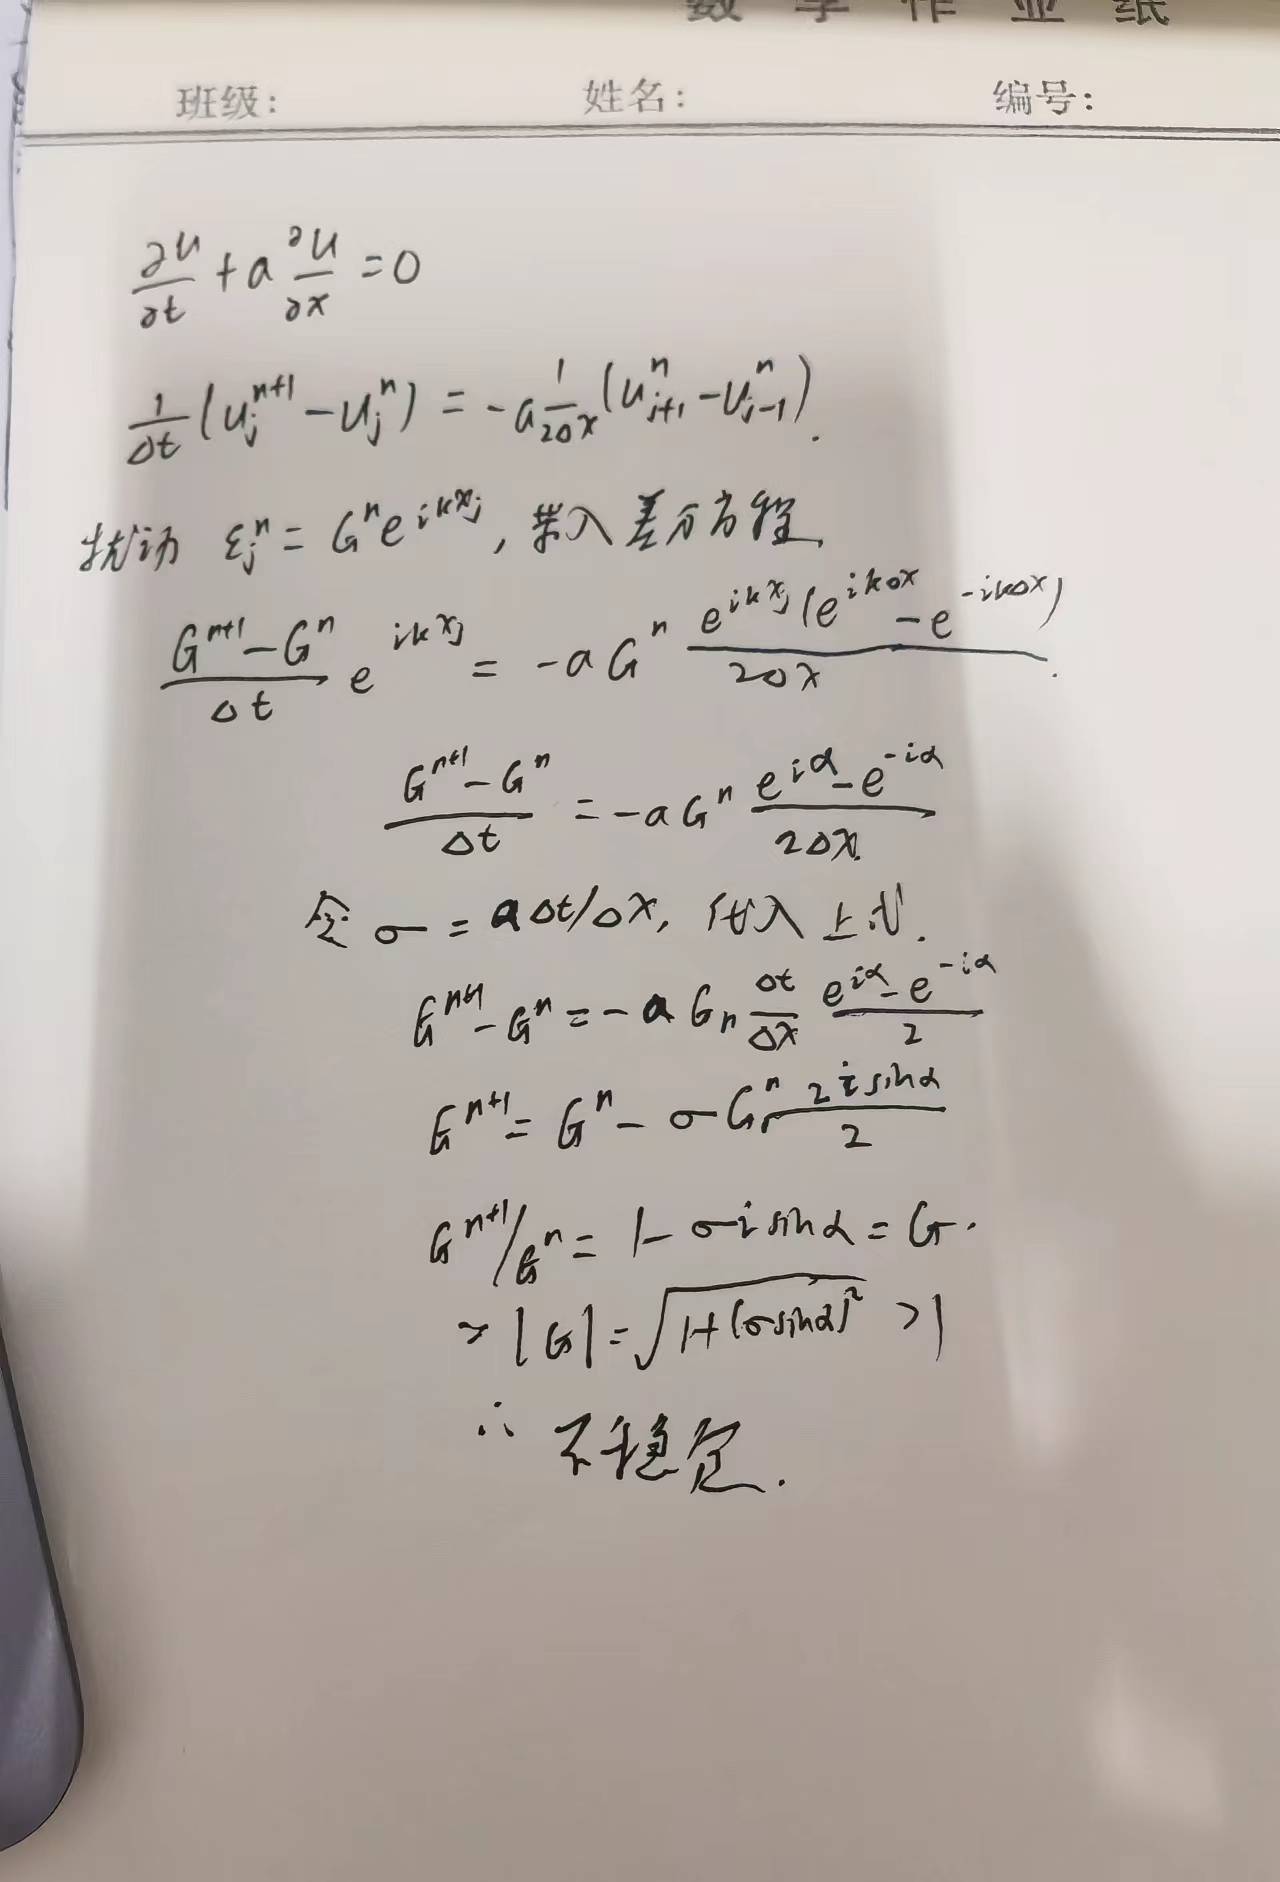 数学作业纸
班级: 姓名: 编号:
∂u/∂t + a ∂u/∂x = 0
1/Δt (u_j^{n+1} - u_j^n) = -a 1/2Δx (u_{j+1}^n - u_{j-1}^n).
扰动 ε_j^n = G^n e^{ikx_j}, 带入差分方程
(G^{n+1} - G^n)/Δt e^{ikx_j} = -a G^n e^{ikx_j}(e^{ikΔx} - e^{-ikΔx})/2Δx.
(G^{n+1} - G^n)/Δt = -a G^n (e^{iα} - e^{-iα})/2Δx.
令 σ = aΔt/Δx, 代入上式.
G^{n+1} - G^n = -a G_n Δt/Δx (e^{iα} - e^{-iα})/2
G^{n+1} = G^n - σ G^n 2i sinα/2
G^{n+1}/G^n = 1 - σi sinα = G.
|G| = √(1+(σsinα)^2) >1
∴ 不稳定.